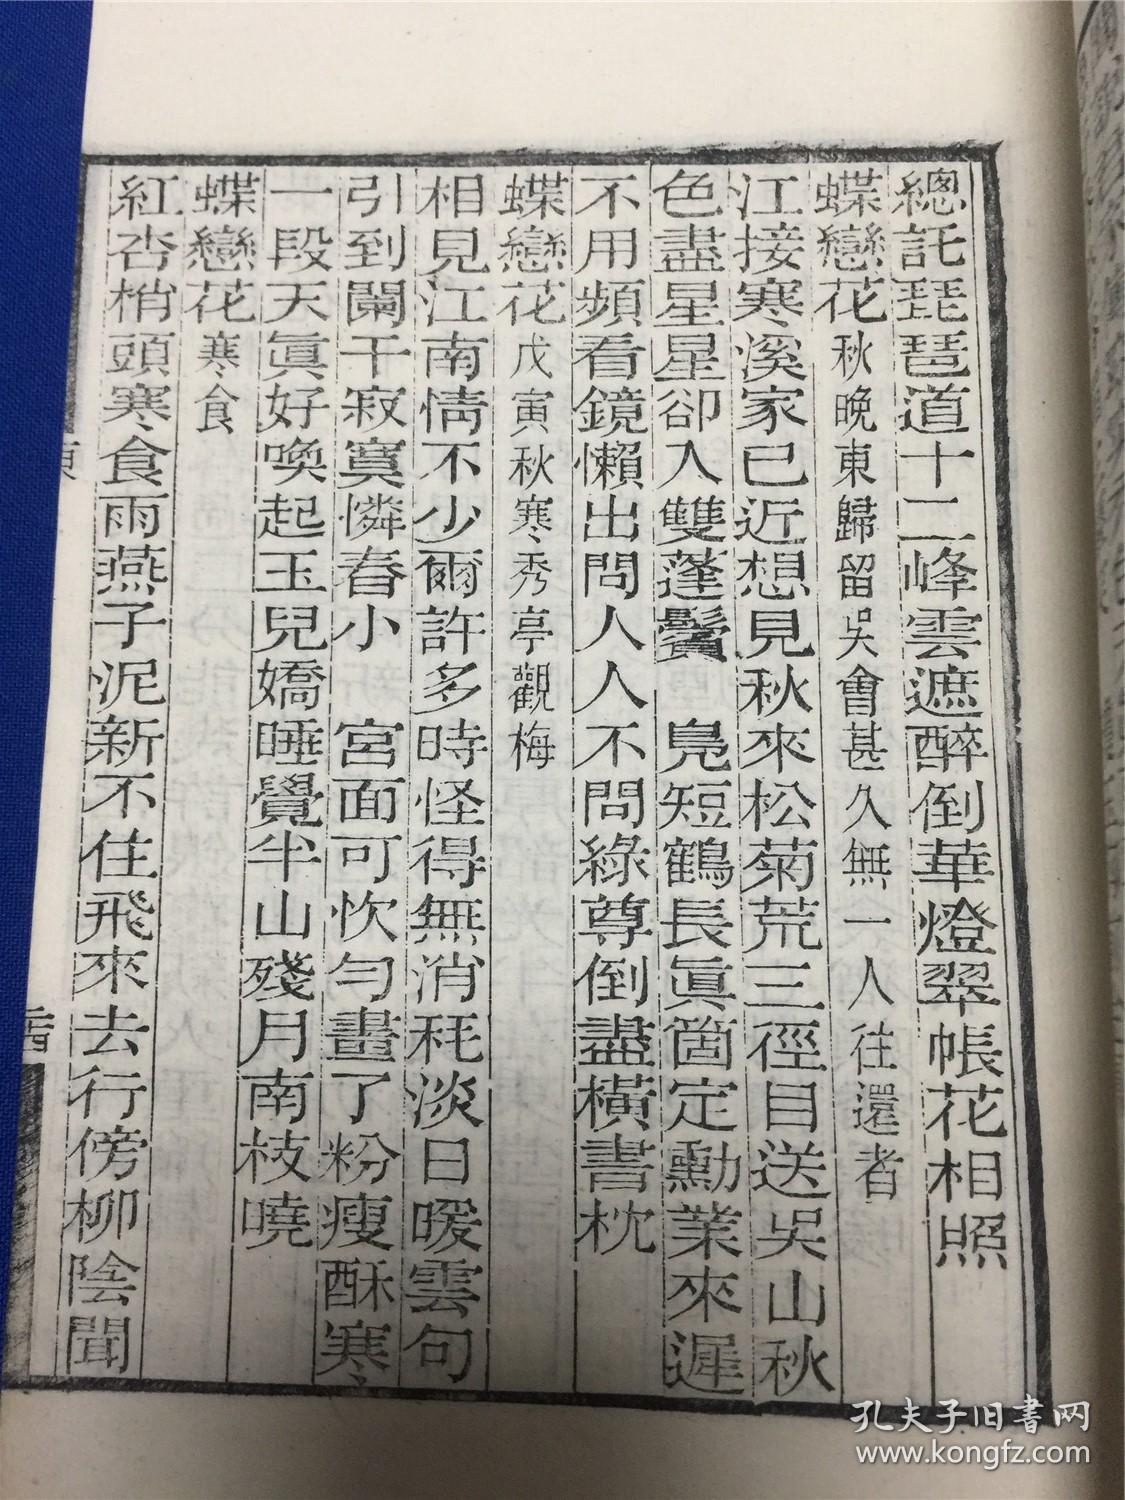 總託琵琶道十二峰雲遮醉倒華燈翠帳花相照
蝶戀花秋晚東歸留吳會甚久無一人往還者
江接寒溪家已近想見秋來松菊荒三徑目送吳山秋
色盡星星卻入雙蓬鬢　鳧短鶴長眞箇定勳業來遲
不用頻看鏡懶出問人人不問綠尊倒盡橫書枕
蝶戀花戊寅秋寒秀亭觀梅
相見江南情不少爾許多時怪得無消耗淡日暖雲句
引到闌干寂寞憐春小　宮面可忺勻畫了粉瘦酥寒
一段天眞好喚起玉兒嬌睡覺半山殘月南枝曉
蝶戀花寒食
紅杏梢頭寒食雨燕子泥新不住飛來去行傍柳陰聞
孔夫子旧書网
www.kongfz.com